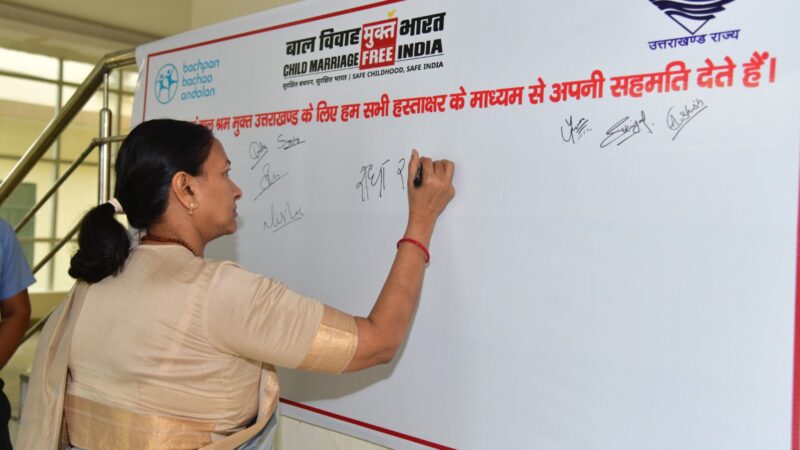 bachpan
bachao
andolan
बाल विवाह मुक्त भारत
CHILD MARRIAGE FREE INDIA
सुरक्षित बचपन, सुरक्षित भारत | SAFE CHILDHOOD, SAFE INDIA
उत्तराखण्ड राज्य
श्रम मुक्त उत्तराखण्ड के लिए हम सभी हस्ताक्षर के माध्यम से अपनी सहमति देते हैं।
राधा र
Ashish